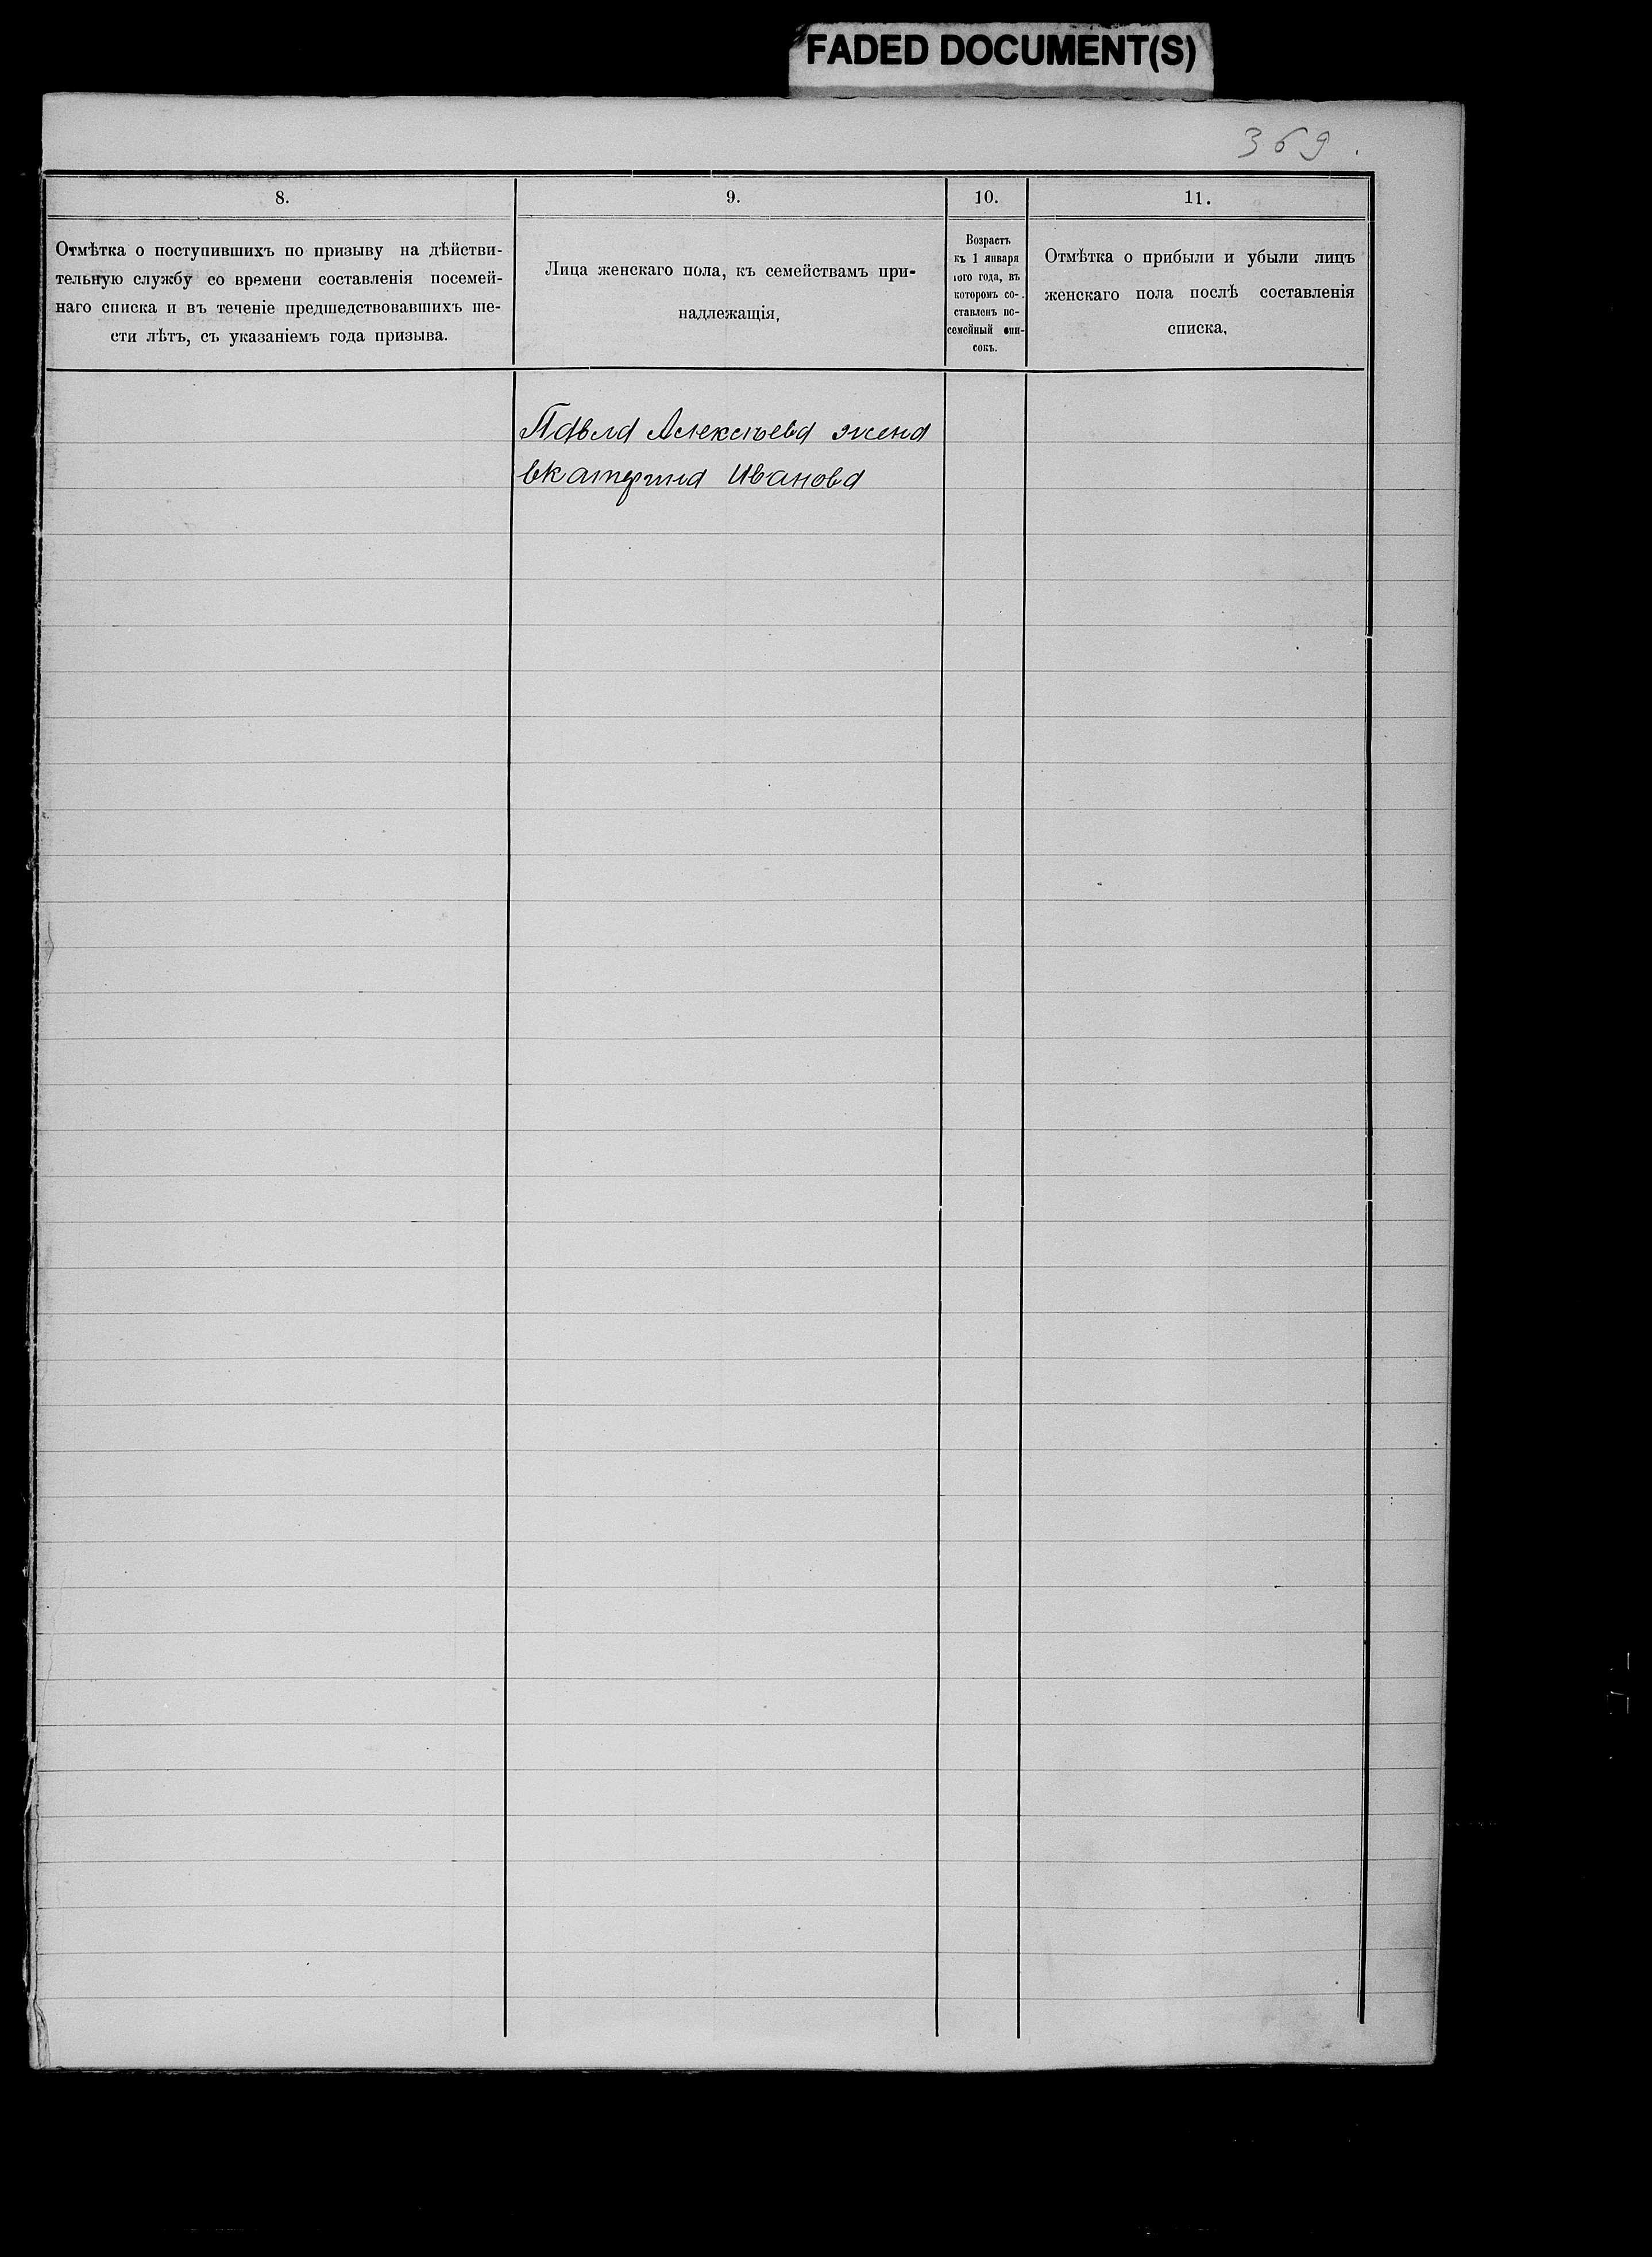 FADED DOCUMENT(S)
369.
8.
Отмѣтка о поступившихъ по призыву на дѣйстви-
тельную службу со времени составленія посемей-
наго списка и въ теченіе предшедствовавшихъ ше-
сти лѣтъ, съ указаніемъ года призыва.
9.
Лица женскаго пола, къ семействамъ при-
надлежащія,
10.
Возрастъ
къ 1 января
того года, въ
которомъ со-
ставленъ по-
семейный спи-
сокъ.
11.
Отмѣтка о прибыли и убыли лицъ
женскаго пола послѣ составленія
списка,
Павла Алексѣева жена
Екатерина Иванова